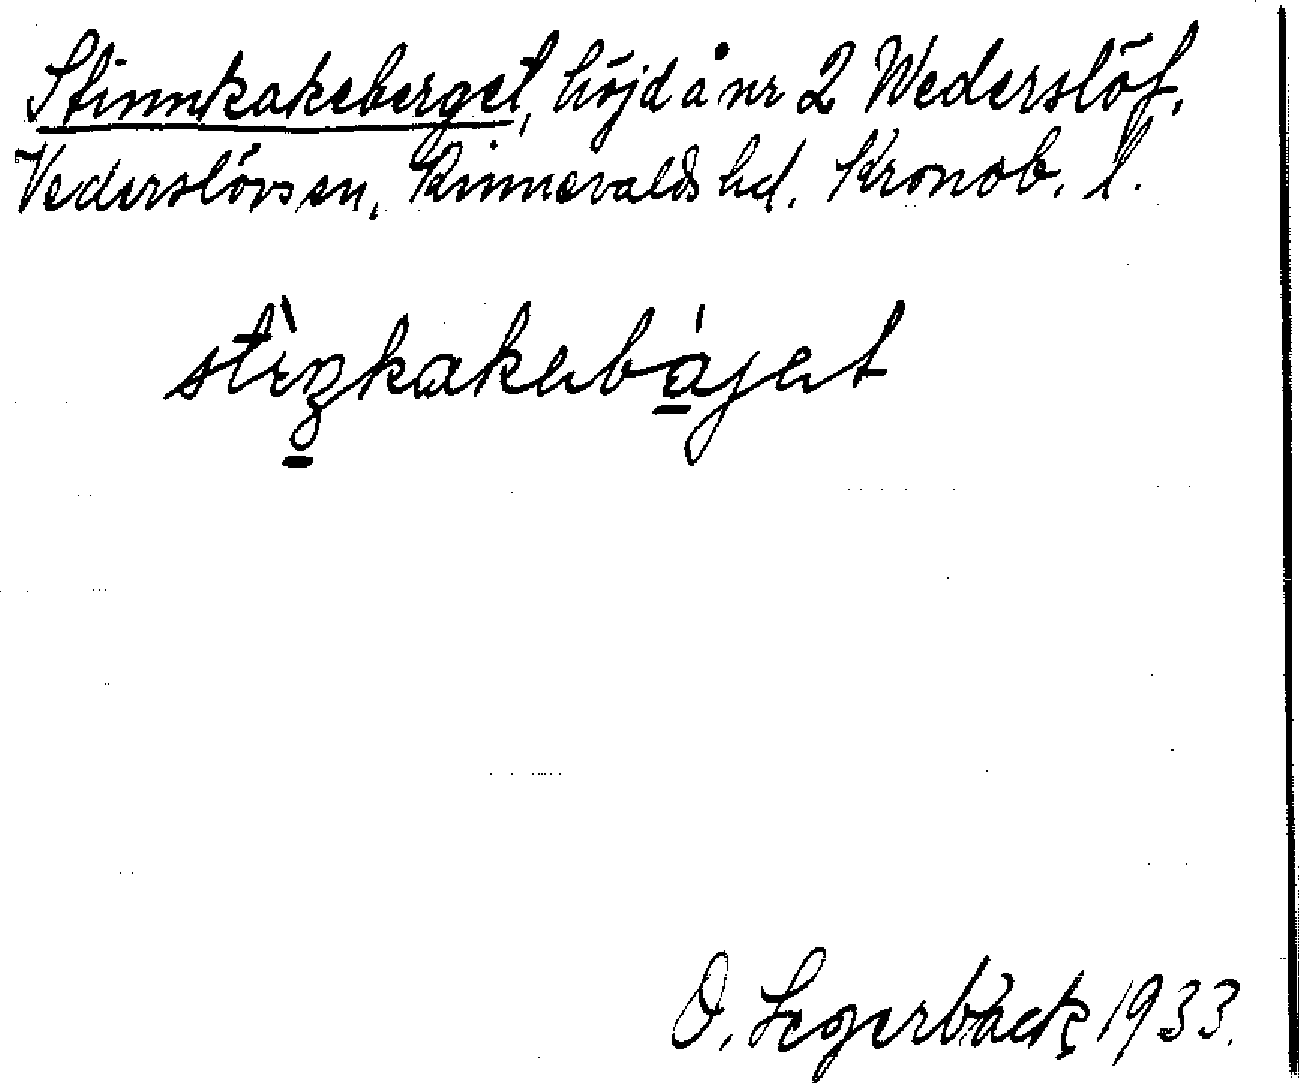 Stinnkakeberget, höjd å nr 2 Wederslöf,
Vederslövs sn, Kinnevalds hd. Kronob. l.
stìŋkakabájat
O. Segerbäck 1933.